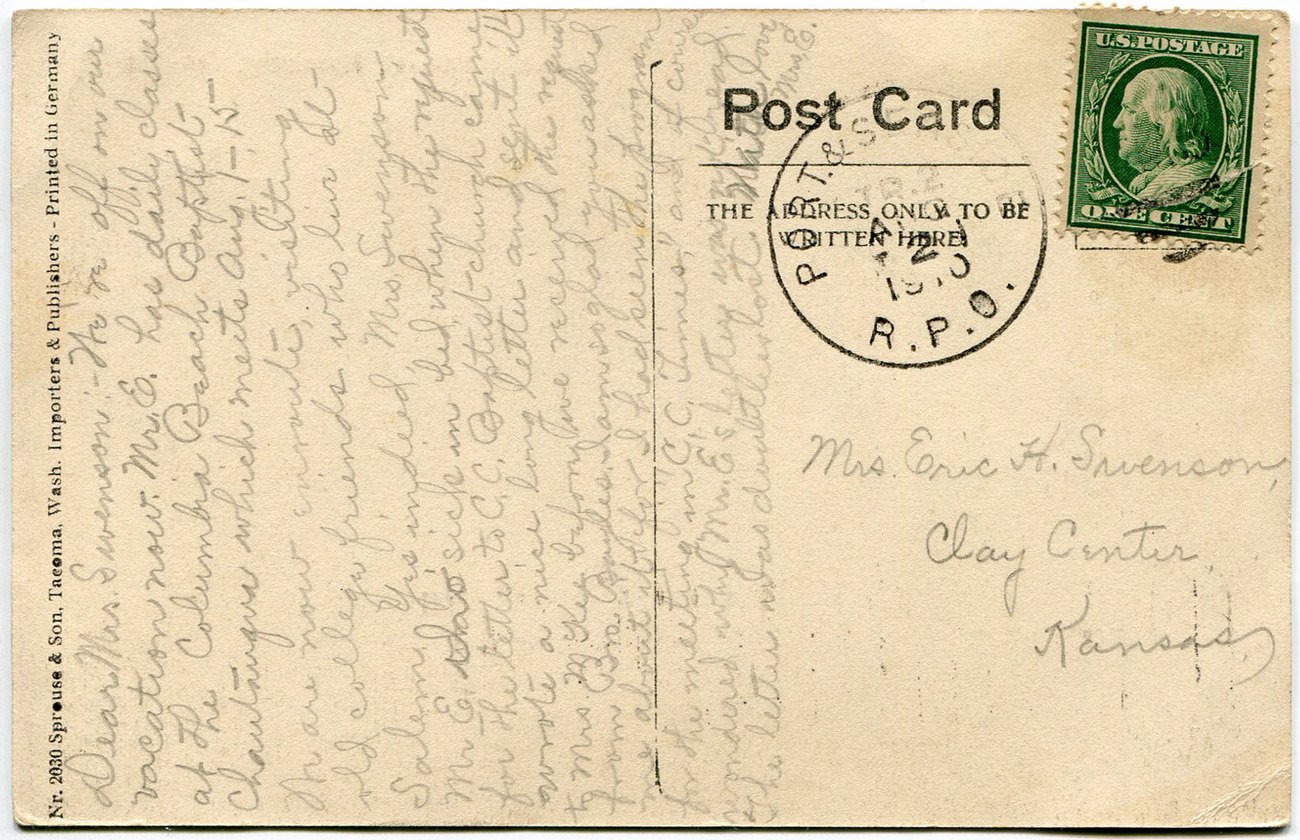 Nr. 2030 Sprouse & Son, Tacoma, Wash. Importers & Publishers - Printed in Germany
Dear Mrs. Swenson:- We're off on our
vacation now. Mr. E. has daily classes
at the Columbia Beach Baptist
Chautauqua which meets Aug. 1-15-
We are now enroute, visiting
old college friends who live at-
Salem. Yes indeed Mrs Swenson
Mr E. was sick in bed when the request
for the letter to C.C. Baptist church came
wrote a nice long letter and sent it
to Mrs McKee before we received the request
from Bro. I am so glad you asked
me about it for I had seen the program
for the meeting in "C.C. Times," and of course
wondered why Mr. E's letter wasn't read
the letter was
With love
Mrs E.
Post Card
THE ADDRESS ONLY TO BE
WRITTEN HERE
PORT. & S
TR. 2
AUG
2
1910
R.P.O.
U.S. POSTAGE
ONE CENT
Mrs. Eric H. Swenson,
Clay Center,
Kansas,